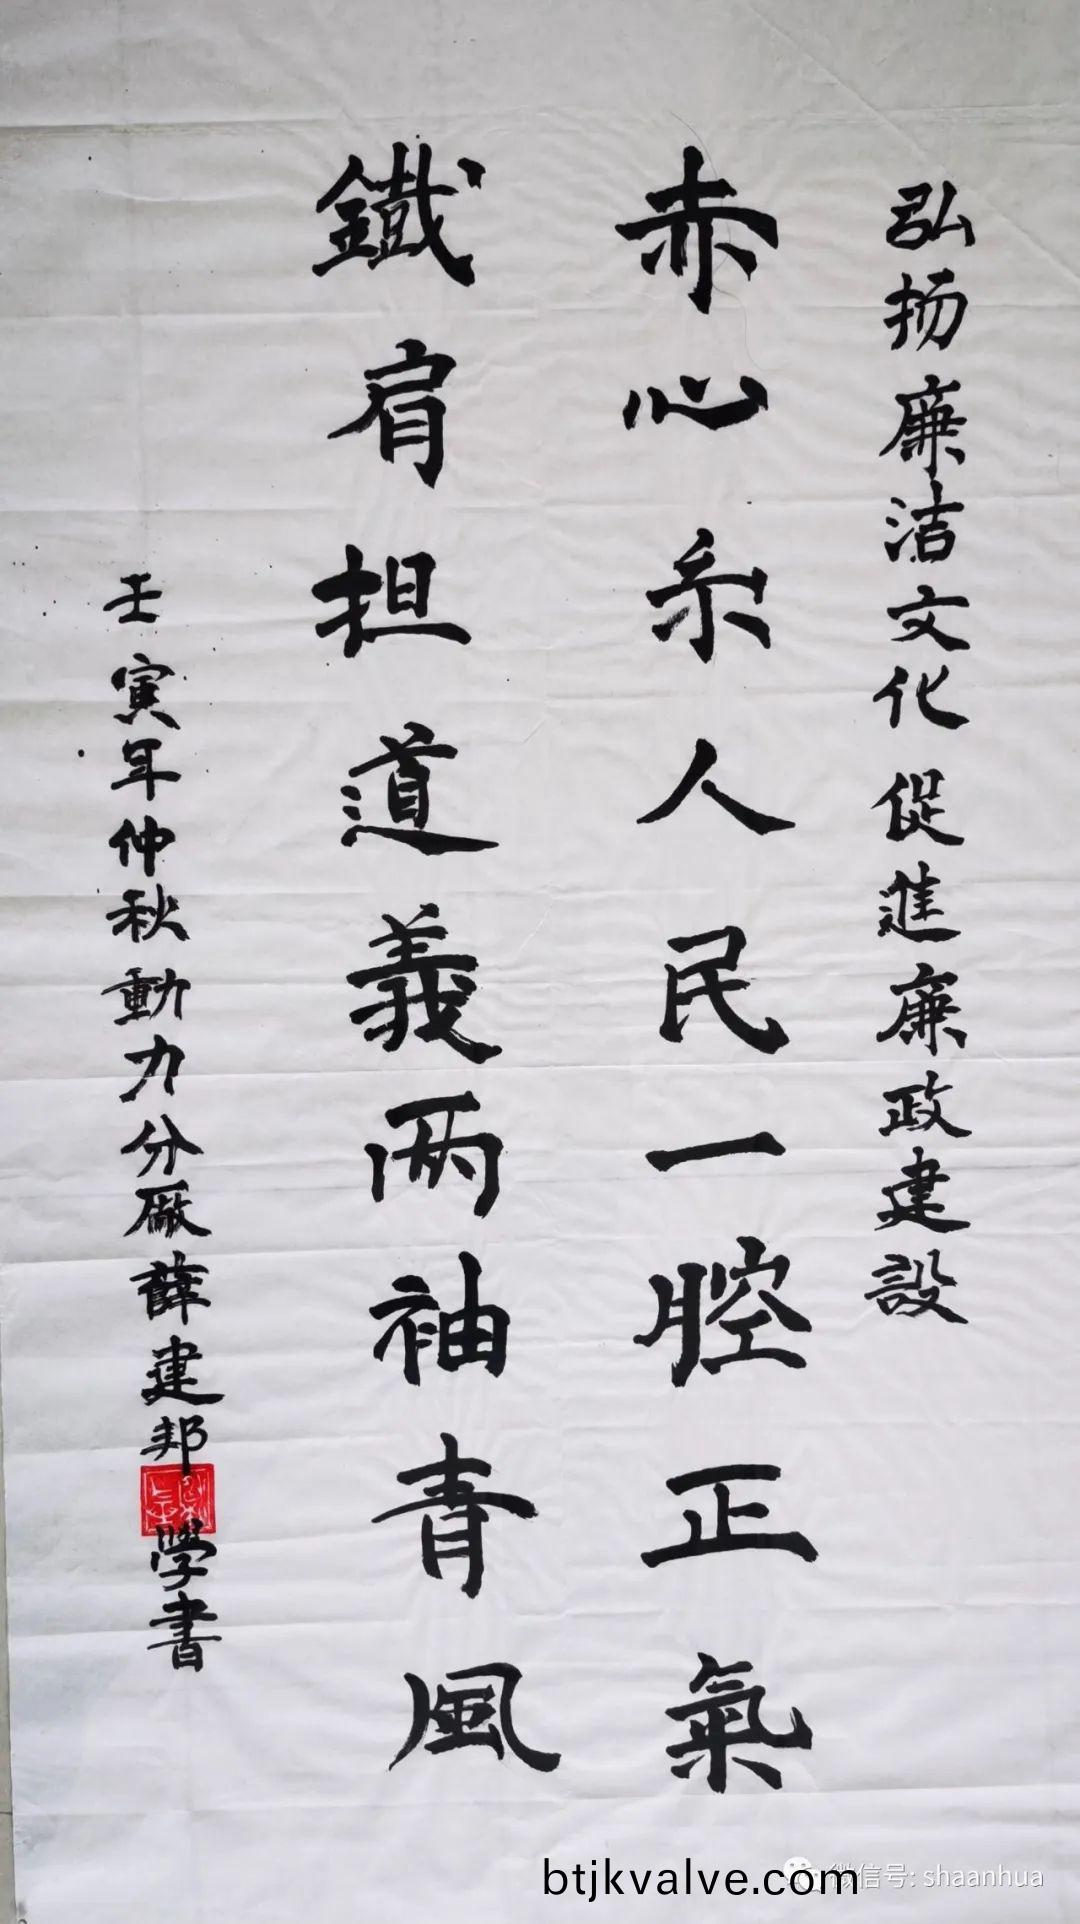 弘扬廉洁文化促進廉政建設
赤心系人民一腔正氣
鐵肩担道義两袖青風
壬寅年仲秋動力分廠薛建邦學書
微信号: shaanhua
btjkvalve.com